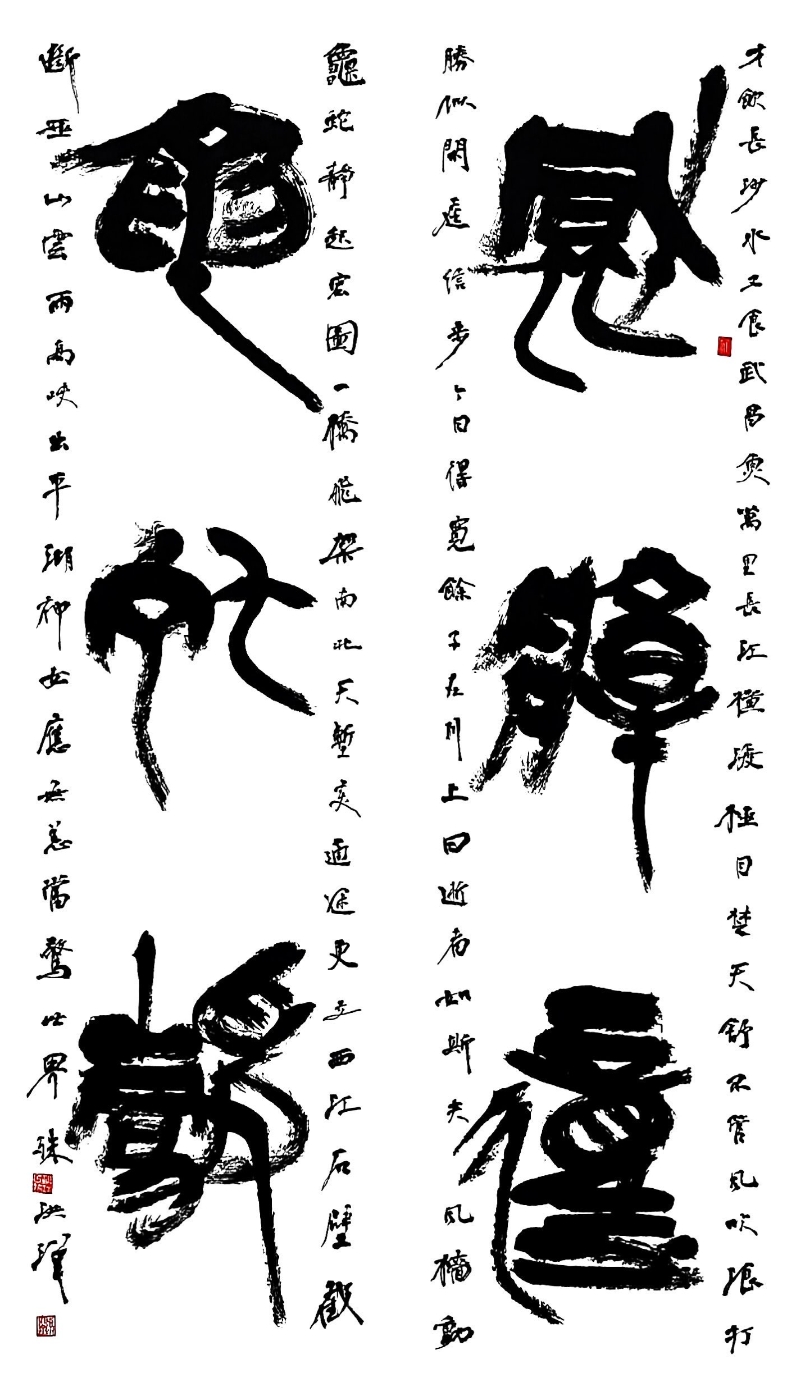 才飲長沙水又食武昌魚萬里長江橫渡極目楚天舒不管風吹浪打
勝似閑庭信步今日得寬餘子在川上曰逝者如斯夫風檣動
龜蛇靜起宏圖一橋飛架南北天塹変通途更立西江石壁截
斷巫山雲雨高峽出平湖神女應無恙當驚世界殊